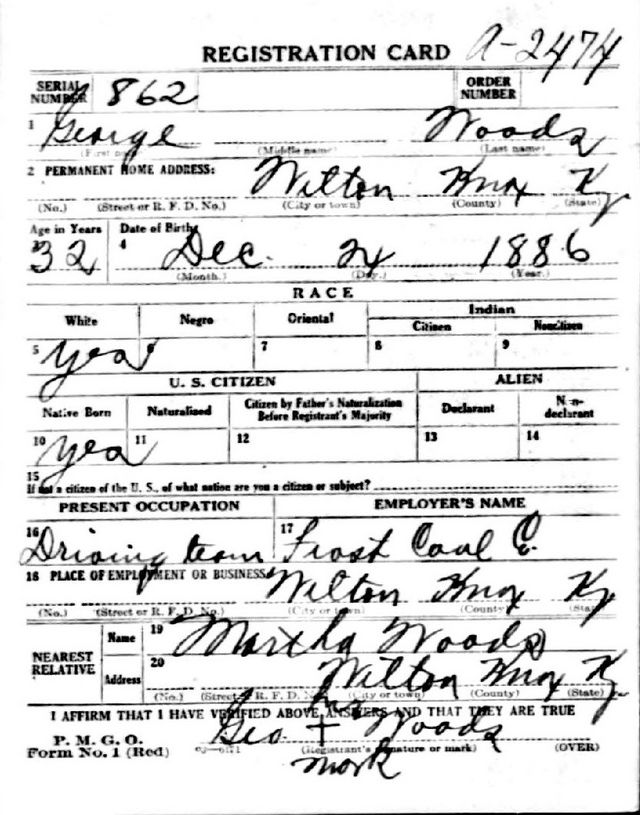 REGISTRATION CARD A-2474
SERIAL NUMBER 862 ORDER NUMBER
1 George Woods
(First name) (Middle name) (Last name)
2 PERMANENT HOME ADDRESS: Wilton Knox Ky
(No.) (Street or R. F. D. No.) (City or town) (County) (State)
Age in Years Date of Birth
3 32 4 Dec. 24 1886
(Month.) (Day.) (Year.)
RACE
White Negro Oriental Indian
Citizen Noncitizen
5 yes 6 7 8 9
U. S. CITIZEN ALIEN
Native Born Naturalized Citizen by Father's Naturalization Before Registrant's Majority Declarant Non-declarant
10 yes 11 12 13 14
15
If not a citizen of the U. S., of what nation are you a citizen or subject?
PRESENT OCCUPATION EMPLOYER'S NAME
16 Driving team 17 Frost Coal C.
18 PLACE OF EMPLOYMENT OR BUSINESS: Wilton Knox Ky
(No.) (Street or R. F. D. No.) (City or town) (County) (State)
NEAREST RELATIVE Name 19 Martha Woods
Address 20 Wilton Knox Ky
(No.) (Street or R. F. D. No.) (City or town) (County) (State)
I AFFIRM THAT I HAVE VERIFIED ABOVE ANSWERS AND THAT THEY ARE TRUE
P. M. G. O. Geo. his + Woods
Form No. 1 (Red) (Registrant's signature or mark) (OVER)
mark